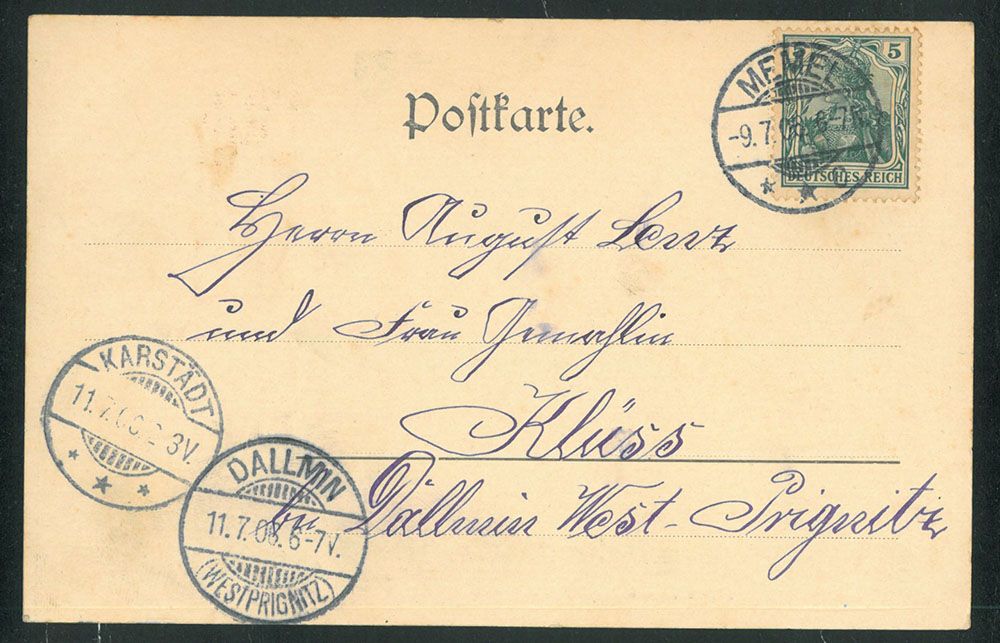 Postkarte.
5
DEUTSCHES REICH
MEMEL
-9.7.06. 6-7N.
Herrn August
und Frau Gemahlin
Klüss
bei Dallmin West-Prignitz
KARSTÄDT
11.7.06. 2-3V.
DALLMIN
11.7.06. 6-7V.
(WESTPRIGNITZ)